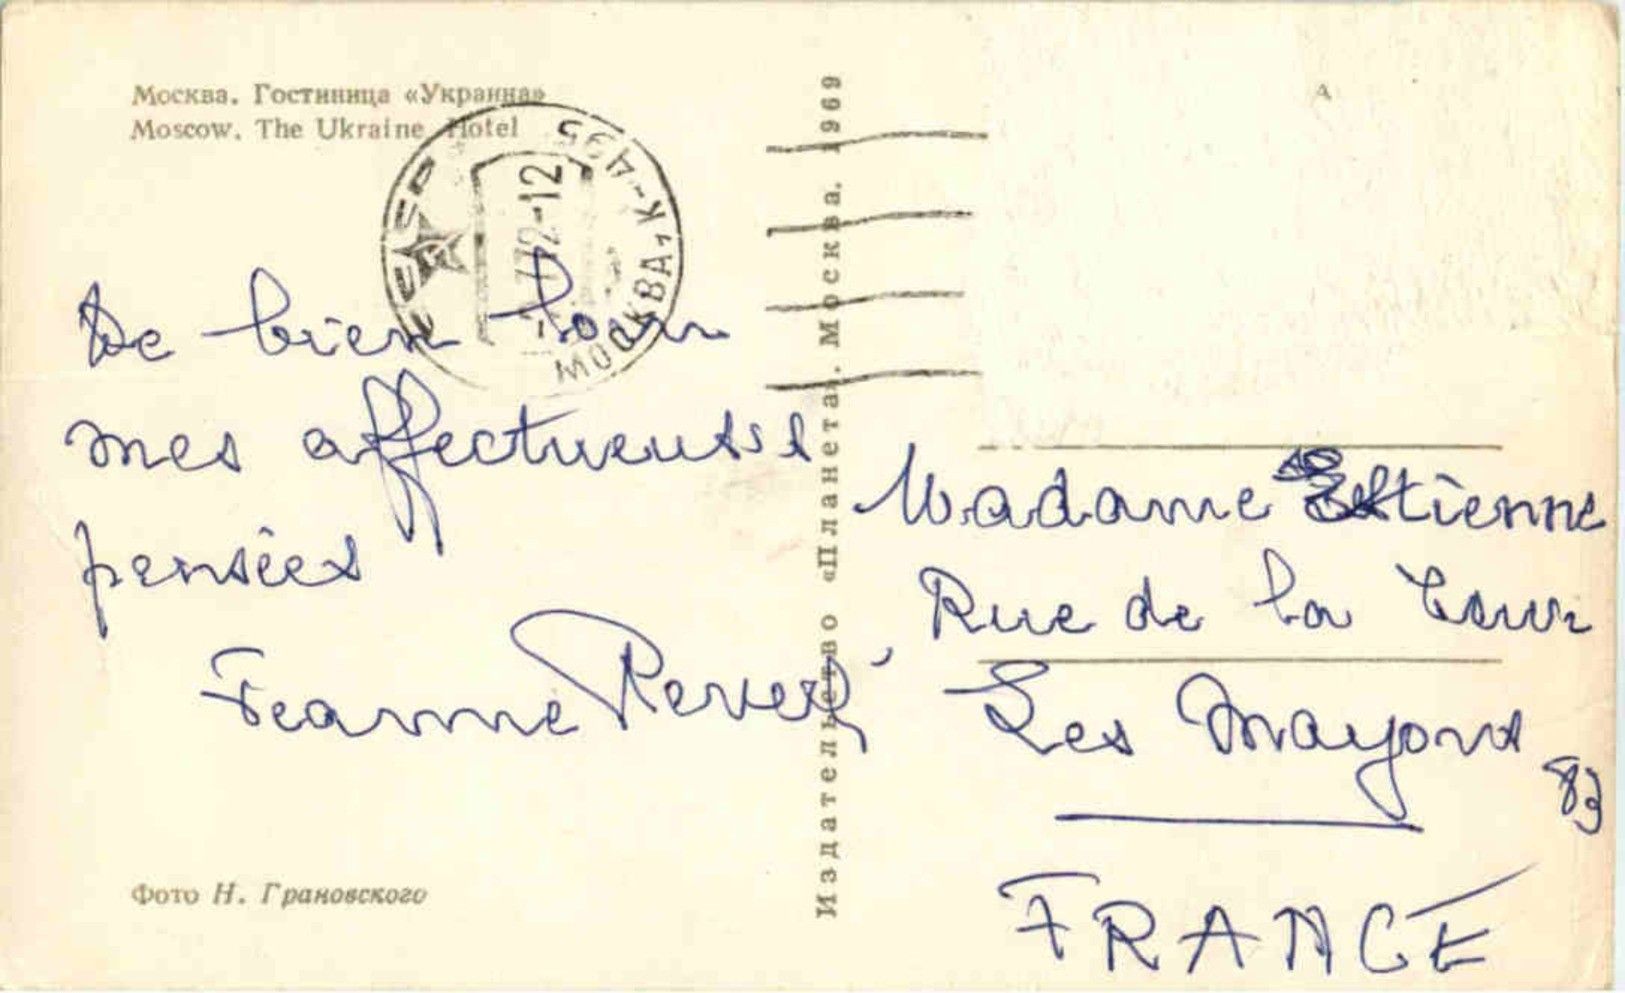 Москва. Гостиница «Украина»
Moscow. The Ukraine Hotel
МОСКВА, К-435
72-12
De bien loin
mes affectueuses
pensées
Jeanne
Фото Н. Грановского
Издательство «Планета». Москва. 1969
А
Madame Estienne
Rue de la Tour
Les Mayons
83
FRANCE